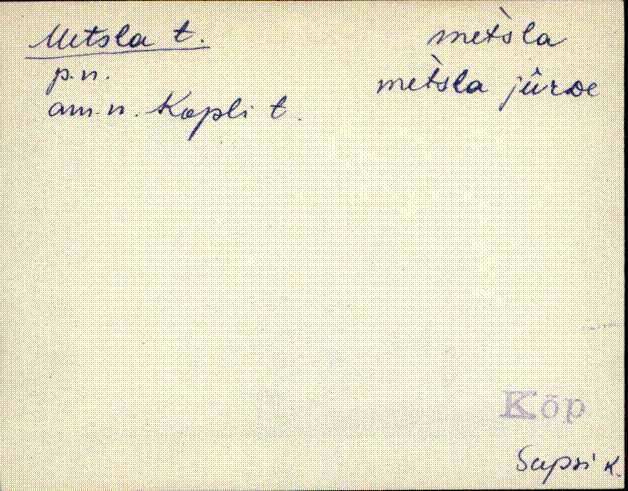 Metsla t.
p.n.
am.n. Kopli t.
met̀sla
met̀sla jûrde
Kõp
Supsi k.